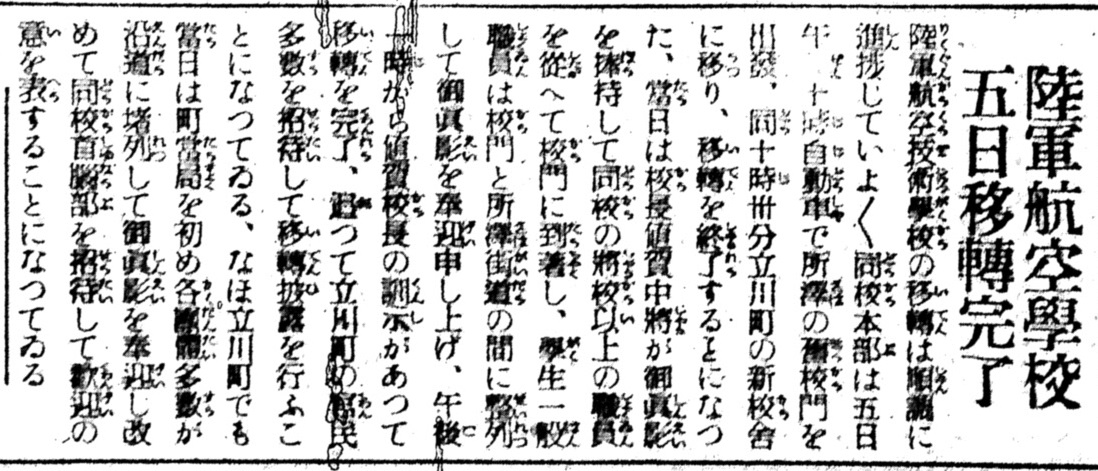 陸軍航空學校
五日移轉完了
陸軍航空技術學校の移轉は順調に
進捗していよ〱同校本部は五日
午前十時自動車で所澤の舊校門を
出發、同十時卅分立川町の新校舍
に移り、移轉を終了することになつ
た、當日は校長値賀中將が御眞影
を捧持して同校の將校以上の職員
を從へて校門に到著し、學生一般
職員は校門と所澤街道の間に整列
して御眞影を奉迎申し上げ、午後
一時から値賀校長の訓示があつて
移轉を完了、追つて立川町の官民
多數を招待して移轉披露を行ふこ
とになつてゐる、なほ立川町でも
當日は町當局を初め各團體多數が
沿道に堵列して御眞影を奉迎し改
めて同校首腦部を招待して歡迎の
意を表することになつてゐる